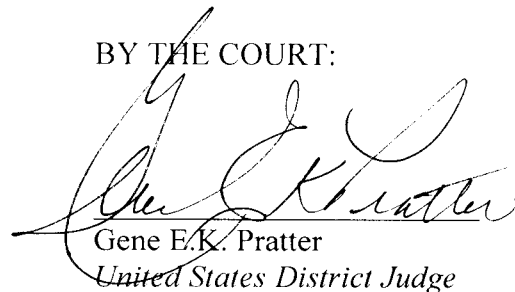 BY THE COURT:
Gene E K Pratter
Gene E.K. Pratter
United States District Judge